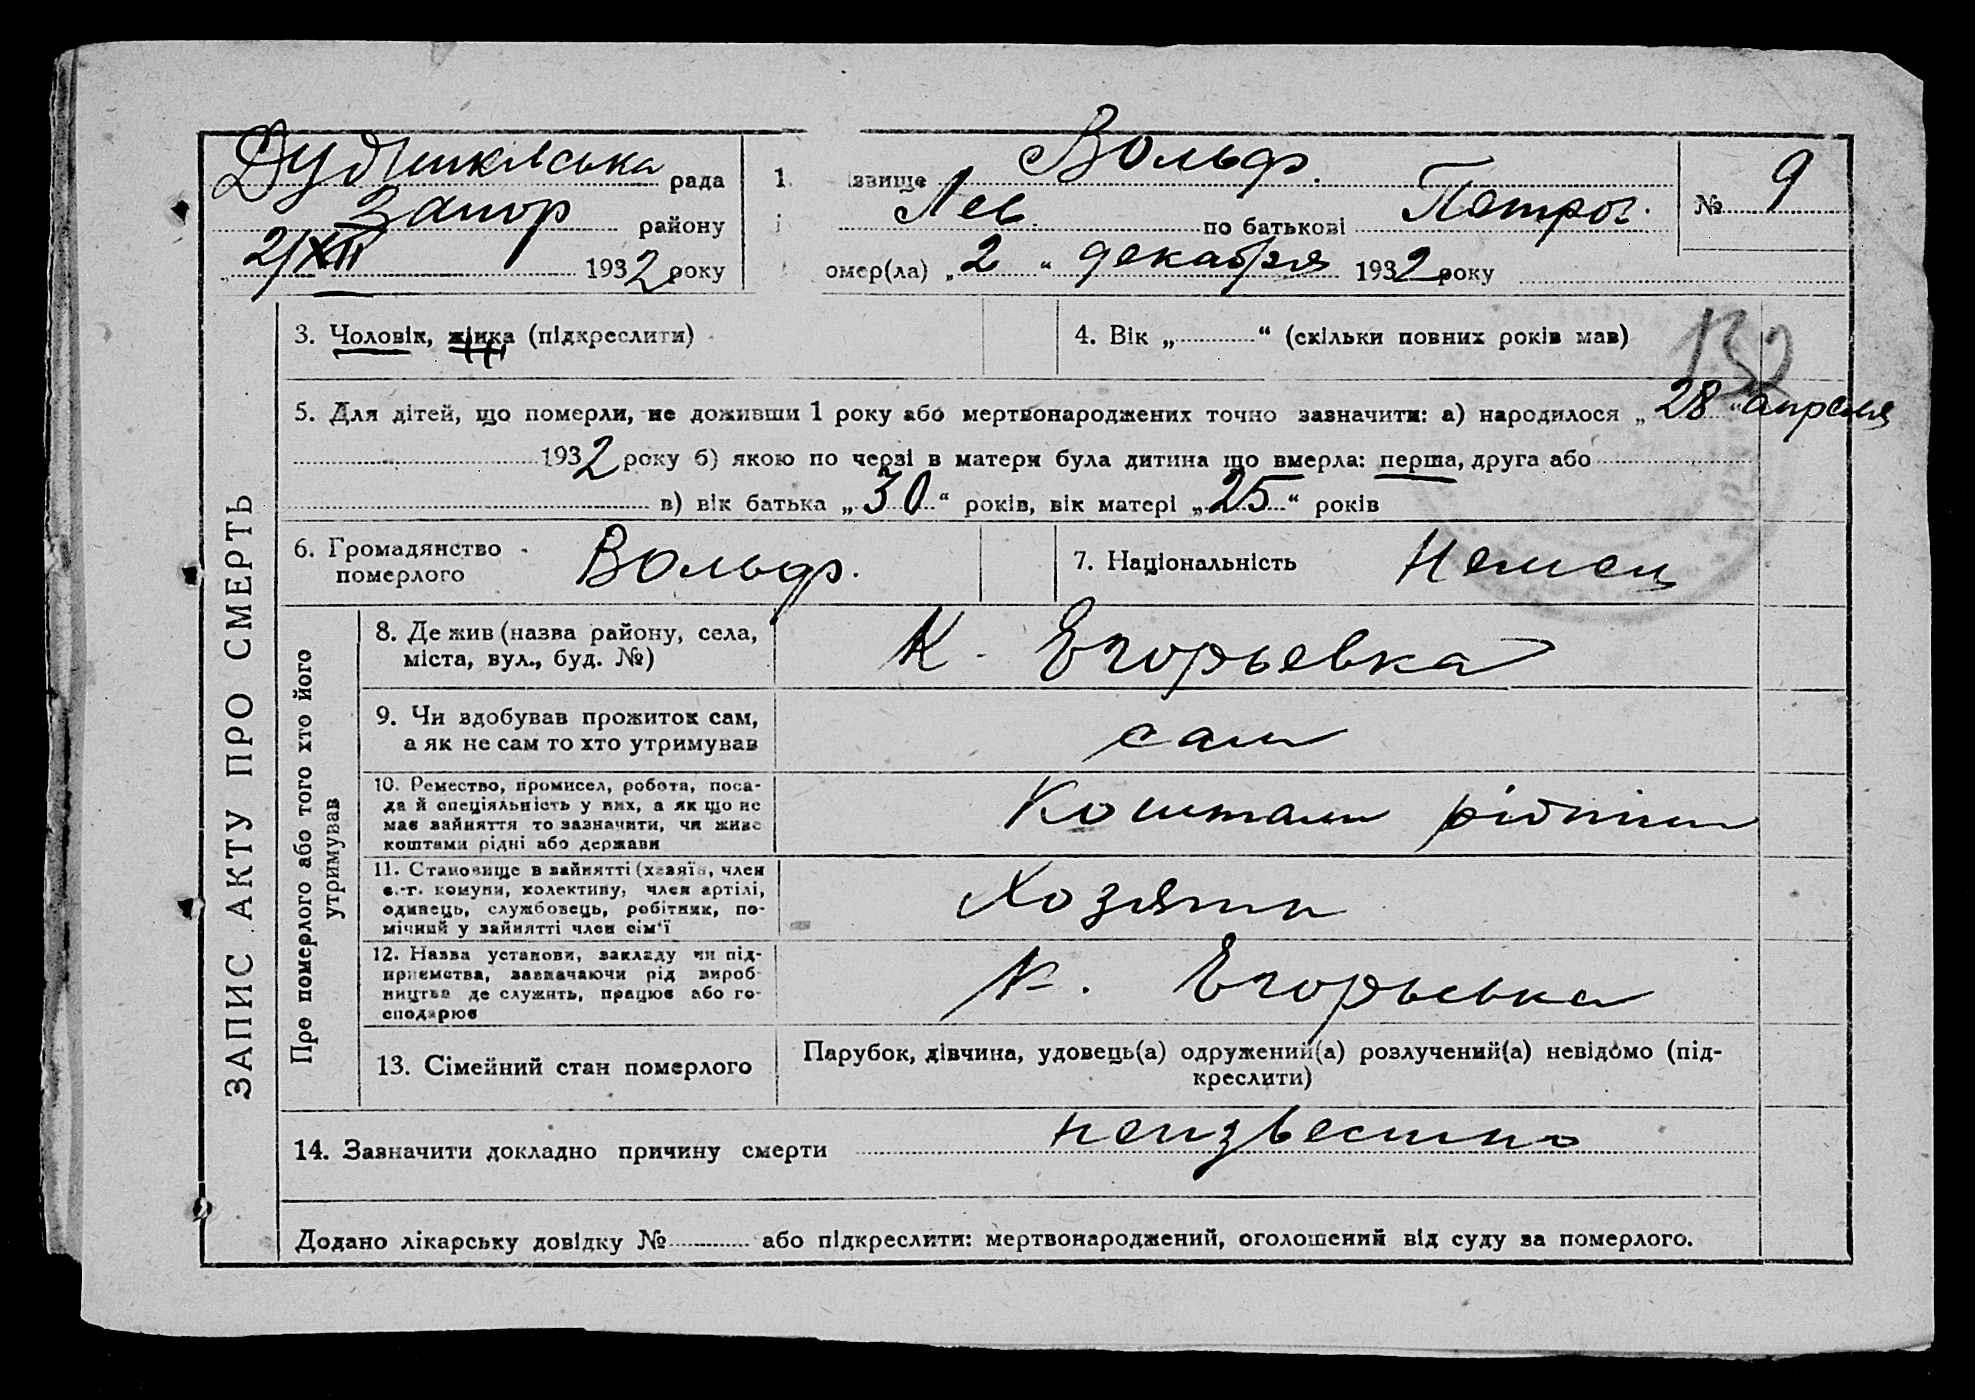 Дудниківська рада
Запор району
2/XII 1932 року
1. ізвище Вольф.
Лев. по батькові Петров.
омер(ла) „2“ декабря 1932 року
№ 9
3. Чоловік, жінка (підкреслити)
4. Вік „ “ (скільки повних років мав)
132
5. Для дітей, що померли, не доживши 1 року або мертвонароджених точно зазначити: а) народилося „28“ апреля
1932 року б) якою по черзі в матери була дитина що вмерла: перша, друга або
в) вік батька „30“ років, вік матері „25“ років
6. Громадянство
померлого
Вольф.
7. Національність Немец
ЗАПИС АКТУ ПРО СМЕРТЬ
Про померлого або того хто його
утримував
8. Де жив (назва району, села,
міста, вул., буд. №)
К. Егорьевка
9. Чи здобував прожиток сам,
а як не сам то хто утримував
сам
10. Ремество, промисел, робота, поса-
да й спеціяльність у них, а як що не
має зайняття то зазначити, чи живе
коштами рідні або держави
Коштами рідними
11. Становище в зайнятті (хазяїн, член
с.-г. комуни, колективу, член артілі,
одинець, службовець, робітник, по-
мічний у зайнятті член сім'ї
Хозяин
12. Назва установи, закладу чи під-
приємства, зазначаючи рід вироб-
ництва де служить, працює або го-
сподарює
К. Егорьевка
13. Сімейний стан померлого
Парубок, дівчина, удовець(а) одружений(а) розлучений(а) невідомо (під-
креслити)
14. Зазначити докладно причину смерти неизвестно
Додано лікарську довідку № або підкреслити: мертвонароджений, оголошений від суду за померлого.